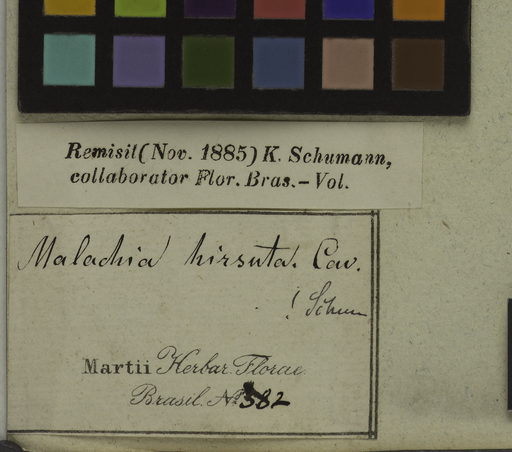 Remisit (Nov. 1885) K. Schumann,
collaborator Flor. Bras. – Vol.
Malachia hirsuta. Cav.
! Schum
Martii Herbar. Florae
Brasil. No 382